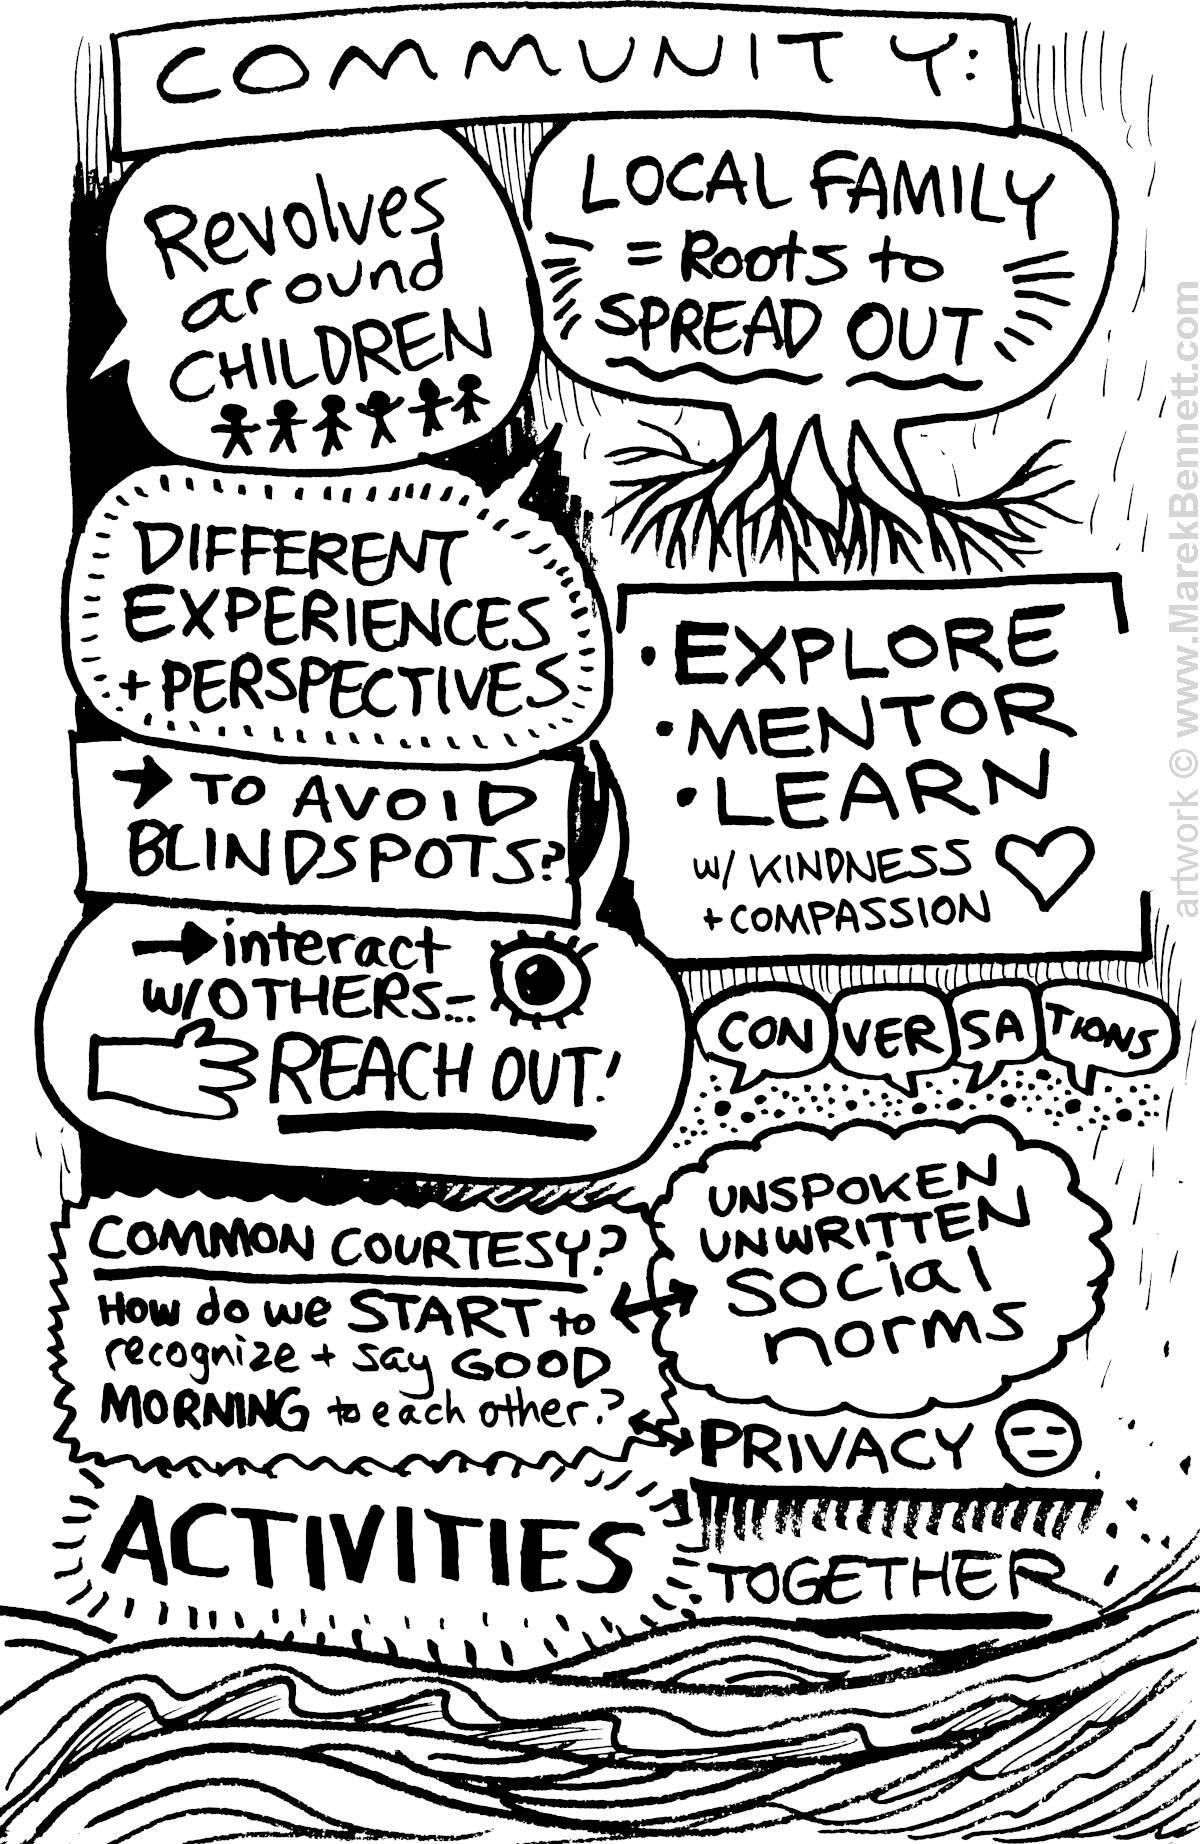 COMMUNITY:
Revolves
around
CHILDREN
LOCAL FAMILY
= Roots to
SPREAD OUT
DIFFERENT
EXPERIENCES
+ PERSPECTIVES
→ TO AVOID
BLINDSPOTS?
→ interact
W/OTHERS...
REACH OUT!
• EXPLORE
• MENTOR
• LEARN
w/ KINDNESS
+ COMPASSION
CON VER SA TIONS
UNSPOKEN
UNWRITTEN
SOCIAL
norms
COMMON COURTESY?
How do we START to
recognize + say GOOD
MORNING to each other?
PRIVACY
ACTIVITIES
TOGETHER
artwork © www.MarekBennett.com